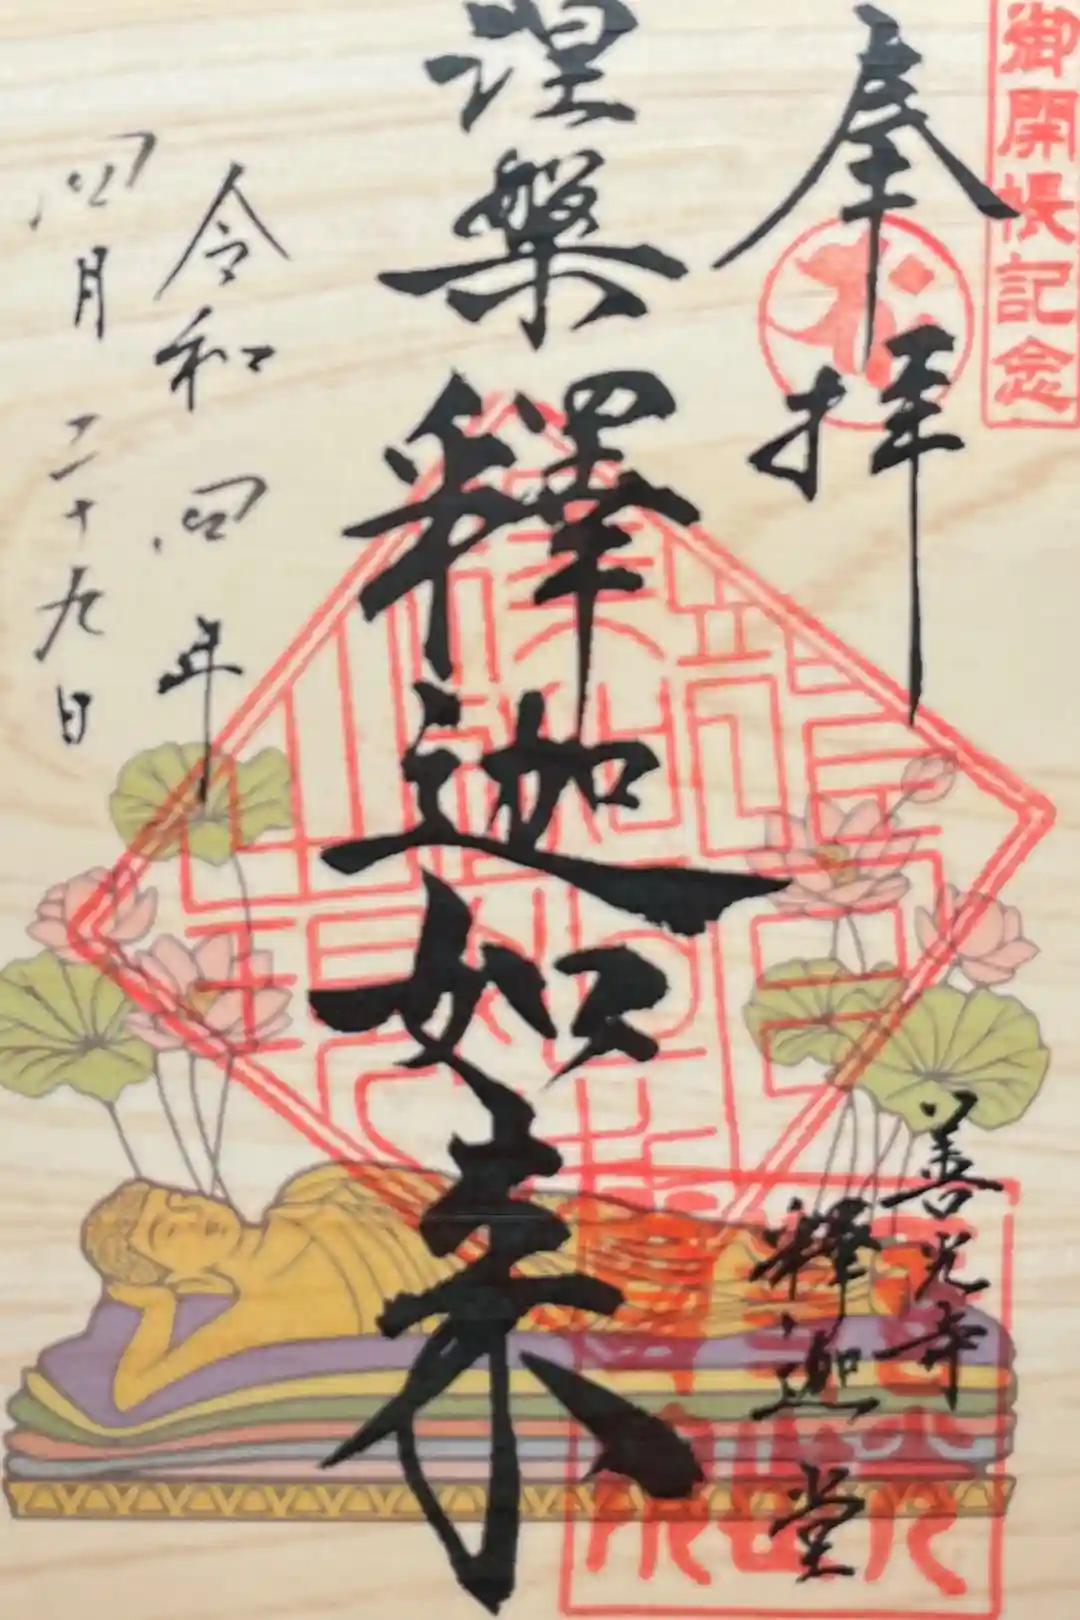 御開帳記念
奉拝
涅槃釋迦如来
善光寺
釋迦堂
令和四年
四月二十九日